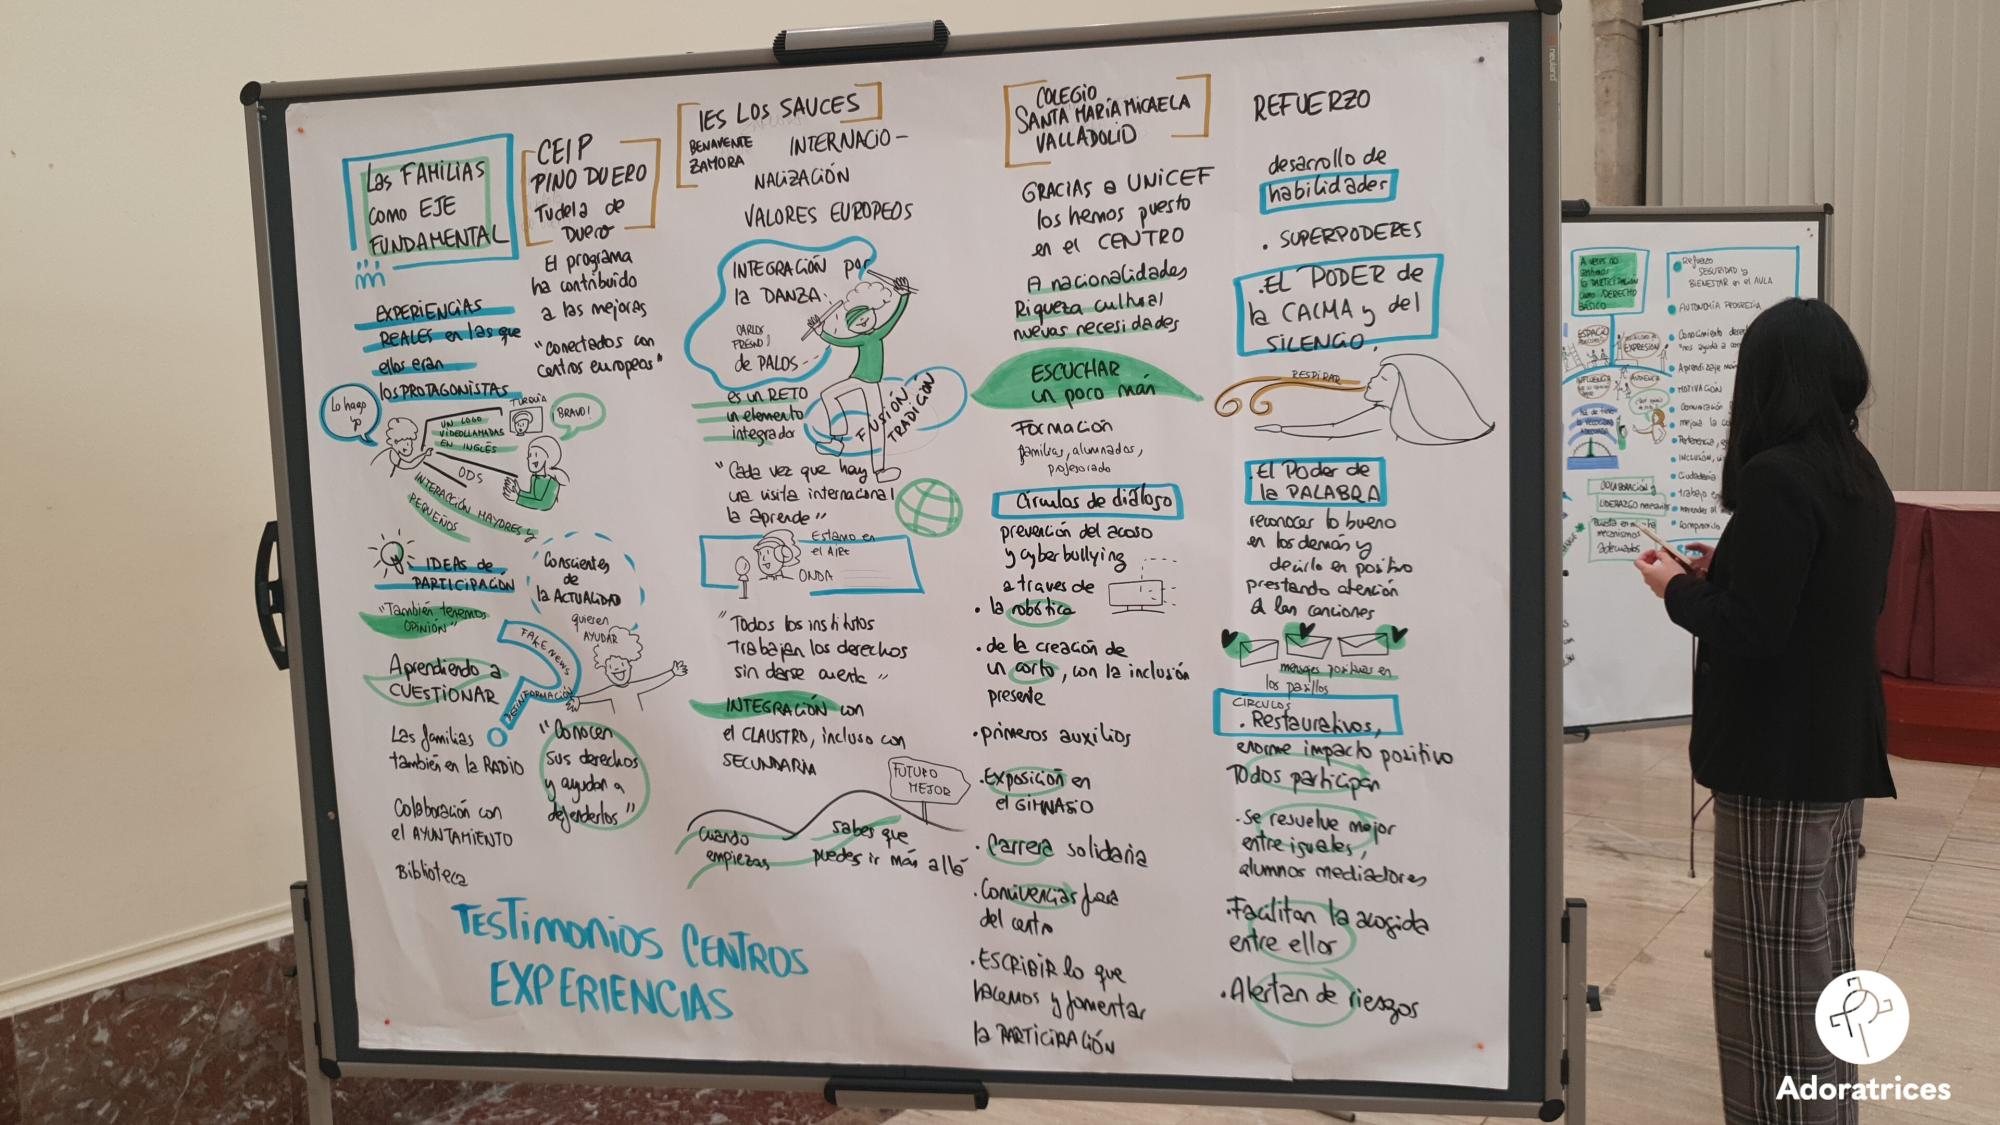 Las FAMILIAS
como EJE
FUNDAMENTAL
EXPERIENCIAS
REALES en las que
ellos eran
los PROTAGONISTAS
Lo hago
yo
TURQUÍA
BRAVO!
UN LOGO
VIDEOLLAMADAS
EN INGLÉS
ODS
INTERACCIÓN MAYORES y
PEQUEÑOS
IDEAS de
PARTICIPACIÓN
"También tenemos
OPINIÓN"
Aprendiendo a
CUESTIONAR
FAKE NEWS
Las familias
también en la RADIO
Colaboración con
el AYUNTAMIENTO
Biblioteca
CEIP
PINO DUERO
Tudela de
Duero
El programa
ha contribuido
a las mejoras
"conectados con
centros europeos"
Conscientes
de
la ACTUALIDAD
quieren
AYUDAR
"Conocen
sus derechos
y ayudan a
defenderlos"
TESTIMONIOS CENTROS
EXPERIENCIAS
IES LOS SAUCES
BENAVENTE
ZAMORA
INTERNACIO-
NALIZACIÓN
VALORES EUROPEOS
INTEGRACIÓN por
la DANZA
de PALOS
FUSIÓN
TRADICIÓN
es un RETO
un elemento
integrador
"Cada vez que hay
una visita internacional
la aprende"
Estamo en
el AIRE
ONDA
"Todos los institutos
Trabajan los derechos
sin darse cuenta"
INTEGRACIÓN con
el CLAUSTRO, incluso con
SECUNDARIA
FUTURO
MEJOR
cuando
empiezas
sabes que
puedes ir más allá
COLEGIO
SANTA MARÍA MICAELA
VALLADOLID
GRACIAS a UNICEF
los hemos puesto
en el CENTRO
nacionalidades
Riqueza cultural
nuevas necesidades
ESCUCHAR
un poco más
Formación
familias, alumnados,
profesorado
Círculos de diálogo
prevención del acoso
y cyberbullying
a traves de
• la robótica
• de la creación de
un corto, con la inclusión
presente
• primeros auxilios
• Exposición en
el GIMNASIO
• Carrera solidaria
• Convivencias fuera
del centro
• ESCRIBIR lo que
hacemos y fomentar
la PARTICIPACIÓN
REFUERZO
desarrollo de
habilidades
• SUPERPODERES
• EL PODER de
la CALMA y del
SILENCIO.
RESPIRAR
• El Poder de
la PALABRA
reconocer lo bueno
en los demás y
decirlo en positivo
prestando atención
a las canciones
mensajes positivos en
los pasillos
CÍRCULOS
• Restaurativos,
enorme impacto positivo
Todos participan
• Se resuelve mejor
entre iguales,
alumnos mediadores
• Facilitan la acogida
entre ellos
• Alertan de riesgos
neuland
Refuerzo
SEGURIDAD y
BIENESTAR en el AULA
MOTIVACIÓN
COLABORACIÓN y
LIDERAZGO
mecanismos
adecuados
Adoratrices